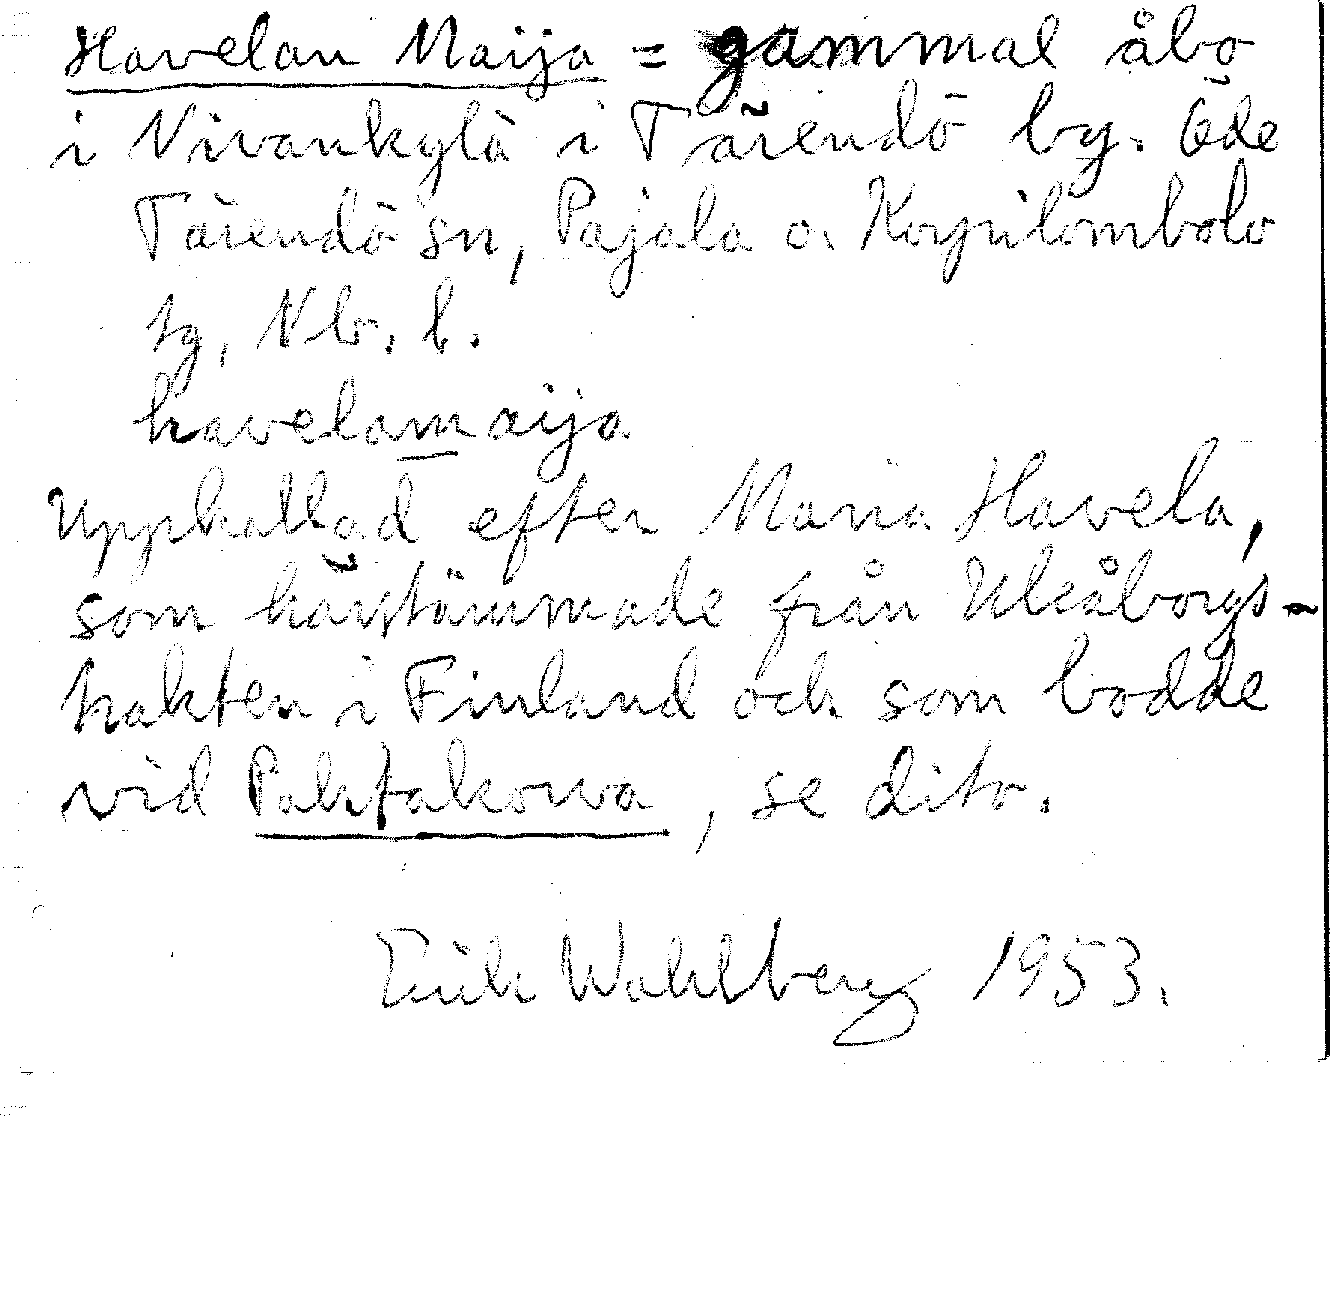 Havelan Maija = gammal åbo
i Nivankylä i Tärendö by. Öde
Tärendö sn, Pajala o. Korpilombolo
tg, Nb. l.
havelamaija
Uppkallad efter Maria Havela,
som härstammade från Uleåborgs-
trakten i Finland och som bodde
vid Pahtakorva, se dito.
Erik Wahlberg 1953.